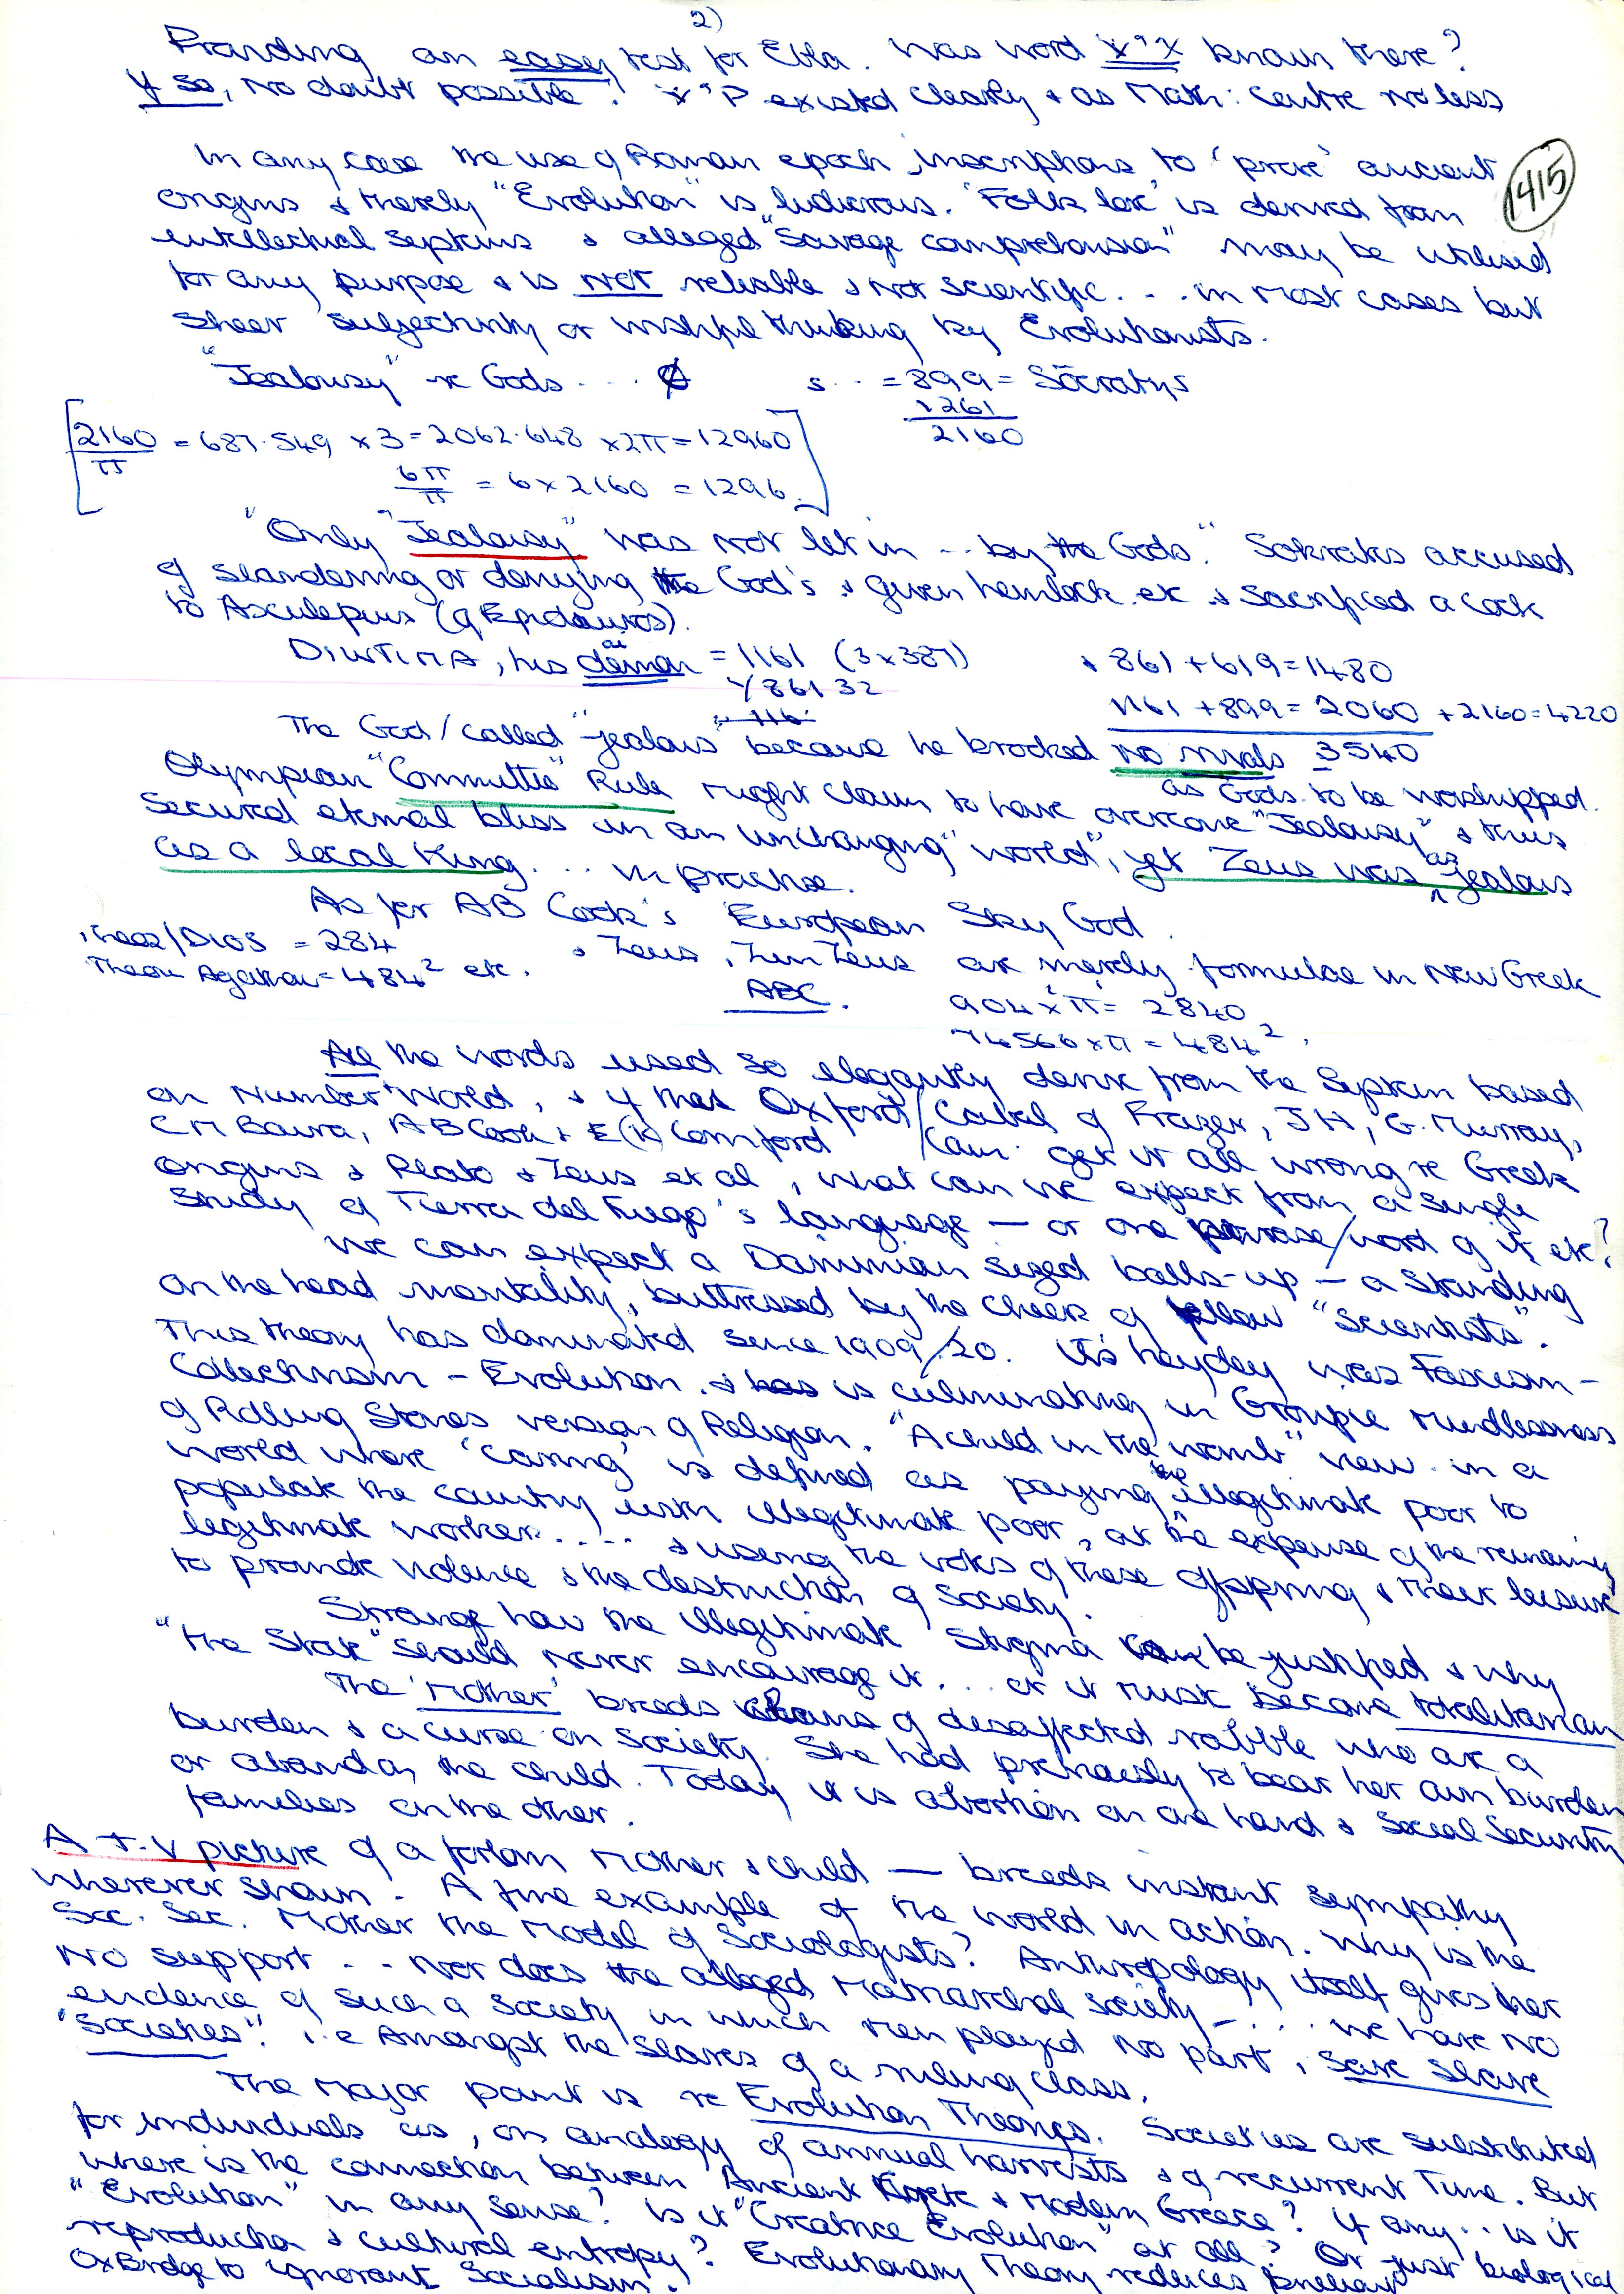 2)
Providing an easy test for Ebla. Was word x"x known there?
If so, no doubt possible! x"P existed clearly & as Math: Centre no less
1415
In any case the use of Roman epoch inscriptions to 'prove' ancient
origins & thereby "Evolution" is ludicrous. 'Folk lore' is derived from
intellectual Septkins & alleged "savage comprehension" may be utilised
for any purpose & is not reliable & not scientific... in most cases but
sheer subjectivity or wishful thinking by Evolutionists.
"Jealousy" re Gods ... s.. = 899 = Sōcratys
1261
2160
2160/π = 687.549 x 3 = 2062.648 x 2π = 12960
6π/π = 6 x 2160 = 1296.
"Only "Jealousy" was not let in -- by the Gods." Sokrates accused
of slandering or denying the God's & given hemlock etc & sacrificed a cock
to Asculepius (of Epidauros).
DIWTIMA, his demon = 1161 (3x387) & 861 + 619 = 1480
/ 861 32
1161 + 899 = 2060 + 2160 = 4220
The God/called "jealous" because he brooked no rivals 3540
as Gods to be worshipped.
Olympian "Committee" Rule might claim to have overcome "Jealousy" & thus
secured eternal bliss in an unchanging "world", yet Zeus was as jealous
as a local King... in practise.
As per AB Cook's European Sky God.
Theos/Dios = 284 & Zeus, Zun Zeus are merely formulae in New Greek
Theon Agathon = 484² etc. ABC. 904 x π = 2840
74566 x π = 484².
All the words used so elegantly derive from the Septkin based
on Number World, & if the Oxford/Cam: Cabal of Frazer, JH, G. Murray,
C M Bowra, AB Cook & E(K) Cornford get it all wrong re Greek
origins & Plato & Zeus et al, what can we expect from a single
study of Tierra del Fuego's language — or one phrase/word of it etc?
We can expect a Darwinian sized balls-up — a standing
on the head mentality, buttressed by the cheek of fellow "Scientists".
This theory has dominated since 1909/20. Its heyday was Fascism –
Collectivism – Evolution & is culminating in Groupie mindlessness
of Rolling Stones version of Religion. "A child in the womb" view in a
world where 'caring' is defined as paying the illegitimate poor to
populate the country with illegitimate poor, at the expense of the remaining
legitimate worker..... & using the votes of these offspring & their leisure
to promote violence & the destruction of Society.
Strange how the illegitimate Stigma can be justified & why
"the State" should never encourage it... or it must become totalitarian
The 'Mother' breeds of desaffected rabble who are a
burden & a curse on society. She had previously to bear her own burden
or abandon the child. Today it is abortion on one hand & Social Security
families on the other.
A T.V picture of a forlorn Mother & child — breeds instant sympathy
wherever shown. A fine example of the world in action. Why is the
Soc. Sec. Mother the model of Sociologists? Anthropology itself gives her
no support... Nor does the alleged Matriarchal society –.... we have no
evidence of such a society in which men played no part, save slave
"Societies". i.e Amongst the slaves of a ruling class.
The major point is re Evolution Theories. Societies are substituted
for individuals as, on analogy of annual harvests & of recurrent Time. But
where is the connection between Ancient & Modern Greece? If any.. is it
"Evolution" in any sense? Is it "Creative Evolution" at all? Or just biological
reproduction & cultural entropy? Evolutionary Theory reduces brilliant
OxBridge to ignorant Socialism.